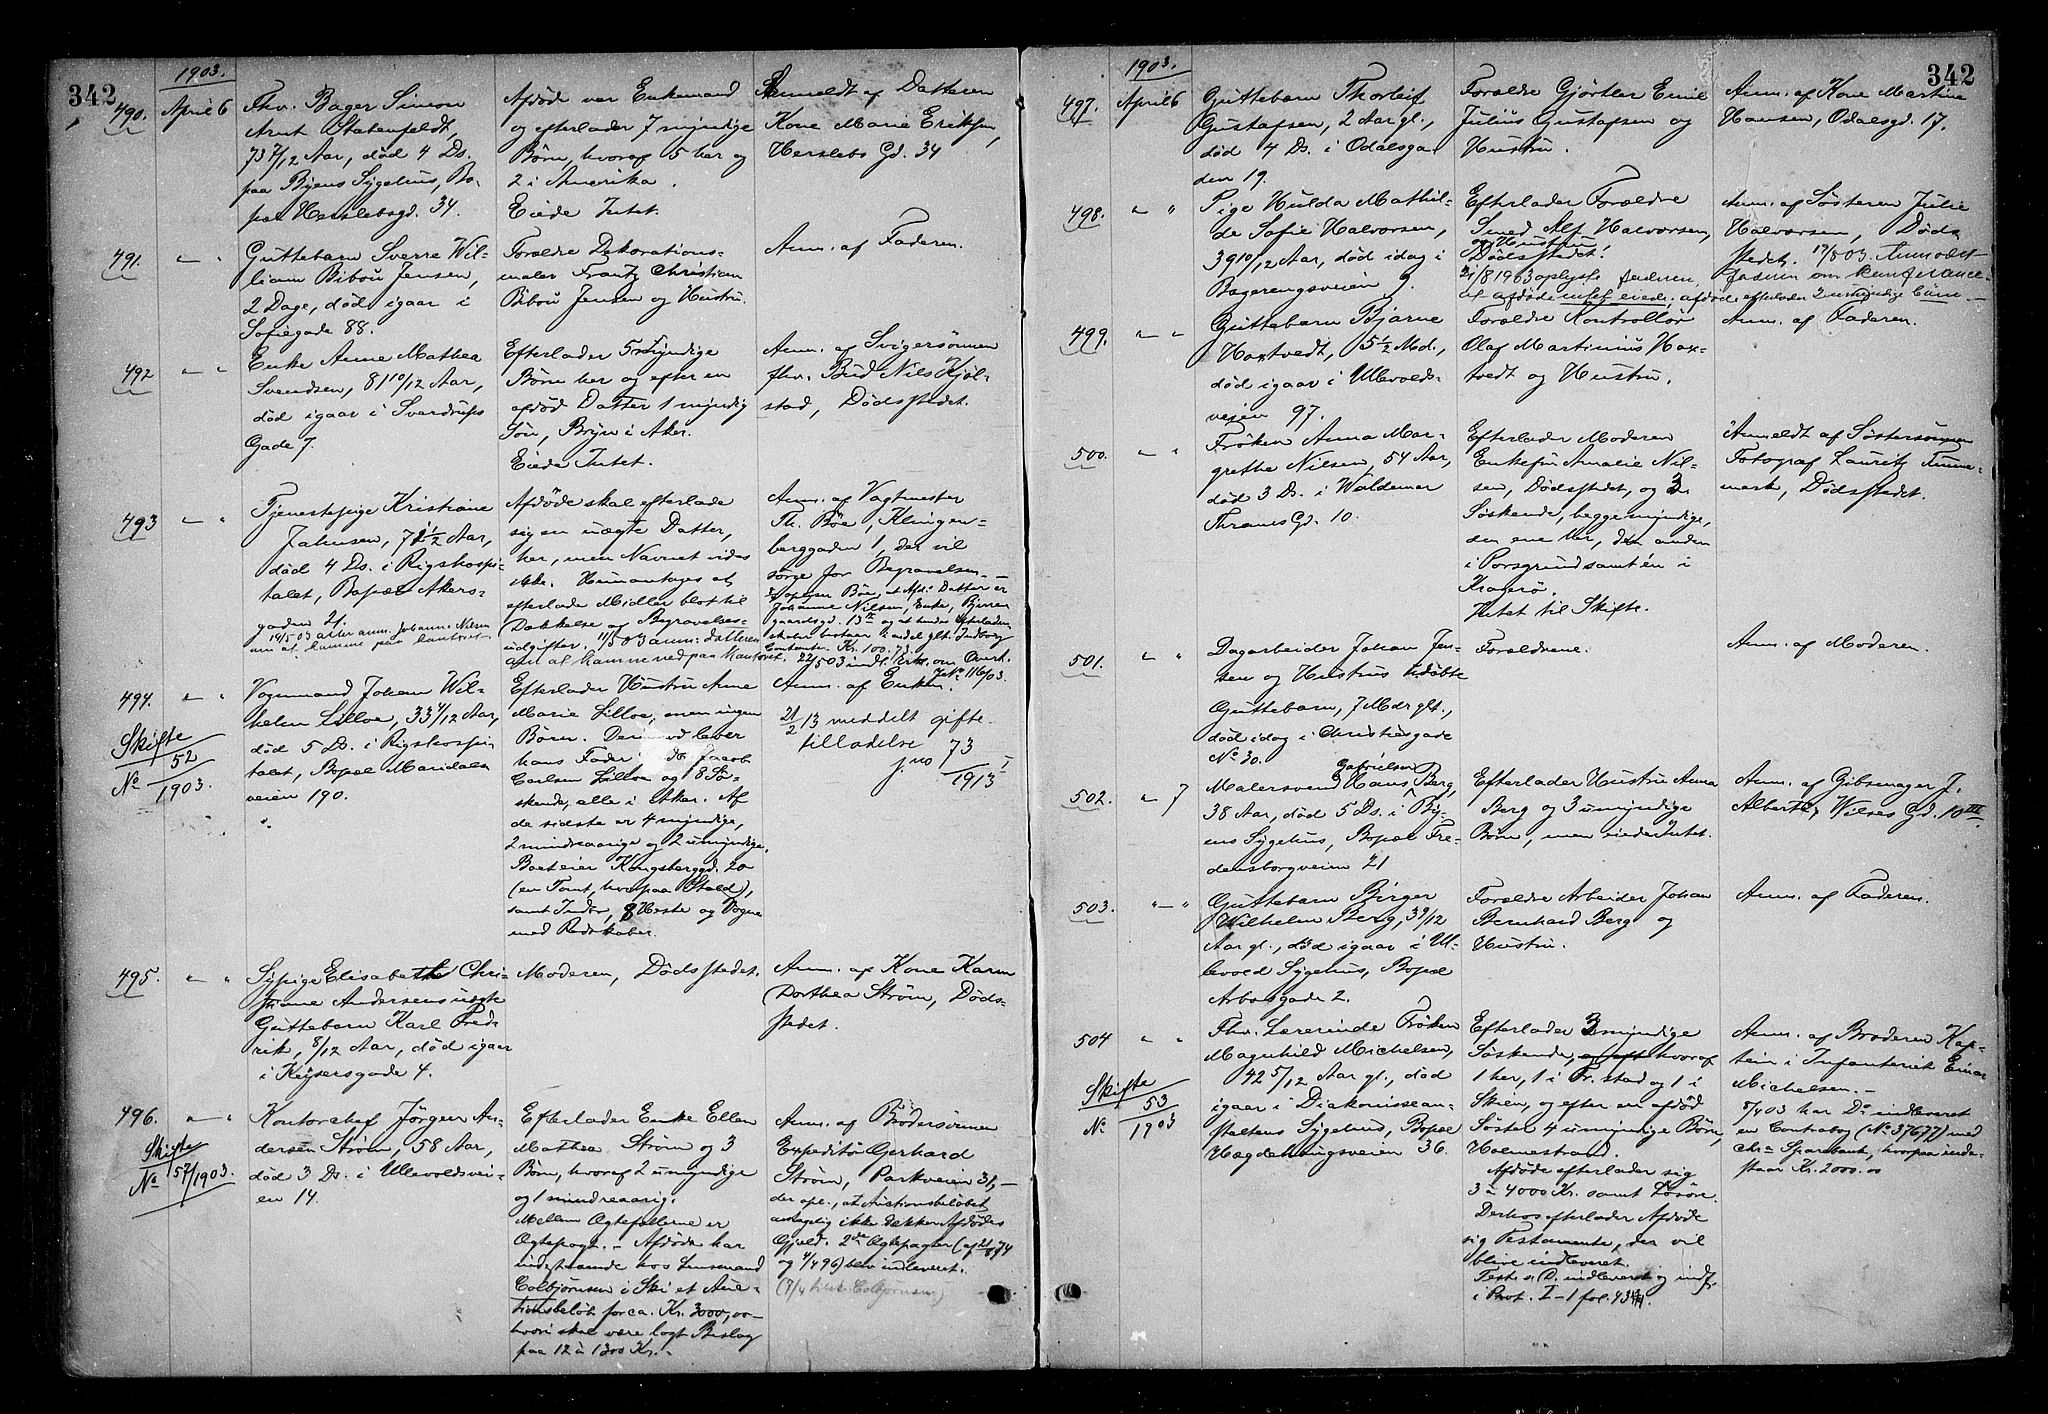 342
1903.
490.
April 6
Fhv. Bager Simon
Arnt Statenfeldt,
73 7/12 Aar, død 4 Ds.
paa Byens Sygehus, Bo-
pæl Herslebsgd. 34.
Afdøde var Enkemand
og efterlader 7 myndige
Børn, hvoraf 5 her og
2 i Amerika.
Eiede Intet.
Anmeldt af Datteren
Kone Marie Eriksen,
Herslebs Gd. 34
491.
Guttebarn Sverre Wil-
liam Bibou Jensen,
2 Dage, død igaar i
Sofiegade 88.
Forældre Dekorations-
maler Frantz Christian
Bibou Jensen og Hustru.
Anm. af Faderen.
492
Enke Anne Mathea
Svendsen, 81 10/12 Aar,
død igaar i Sverdrups
Gade 7.
Efterlader 5 myndige
Børn her og efter en
afdød Datter 1 myndig
Søn, Bryn i Aker.
Eiede Intet.
Anm. af Svigersønnen
fhv. Bud Nils Kjøl-
stad, Dødsstedet.
493
Tjenestepige Kristiane
Jahnsen, 71 1/2 Aar,
død 4 Ds. i Rigshospi-
talet, Bopæl Akers-
gaden 21.
14/5 03 atter anm. Johanne Nilsen
om at komme paa Kontoret
Afdøde skal efterlade
sig en uægte Datter,
her, men Navnet vides
ikke. Hun antages at
efterlade Midler blot til
Dækkelse og Begravelses-
udgifter. 11/5 03 anm. Datteren
om at komme ned paa Kontoret.
Anm. af Vagtmester
Th. Bøe, Klingen-
berggaden 1, der vil
sørge for Begravelsen.
Oplyser Bøe, at Afd. Datter er
Johanne Nilsen, Enke, Bjerre
gaardsgd. 13 og at hendes Efterladen
skaber bestaar i endel glt. Indbo og
Contanter Kr. 100.73.
22/5 03 indl. Erkl. om Overt.
J.No 116/03.
494.
Skifte
No 52/1903.
Vognmand Johan Wil-
helm Lilloe, 33 4/12 Aar,
død 5 Ds. i Rigshospi-
talet, Bopæl Maridals
veien 190.
Efterlader Hustru Anne
Marie Lilloe, men ingen
Børn. Derimod lever
hans Fader Jacob
Carlsen Lilloe og 8 Sø-
skende, alle i Aker. Af
de sidste er 4 myndige,
2 mindreaarige og 2 umyndige.
Boet eier i Kongsberggd. 20
(en Tomt, hvorpaa Stald),
samt Indbo, 8 Heste og Vogne
med Redskaber.
Anm. af Enken.
21/2 13 meddelt gifte-
tilladelse
j.no 73/1913 I
495.
Sypige Elisabeth Chri-
stiane Andersens uægte
Guttebarn Karl Fred-
rik, 8/12 Aar, død igaar
i Keysersgade 4.
Moderen, Dødsstedet.
Anm. af Kone Karen
Dorthea Strøm, Døds-
stedet.
496.
Skifte
No 57/1903.
Kontorchef Jørgen An-
dersen Strøm, 58 Aar,
død 3 Ds. i Ullevoldsvei-
en 14.
Efterlader Enke Ellen
Mathea Strøm og 3
Børn, hvoraf 2 umyndige
og 1 mindreaarig.
Mellem Ægtefællerne er
Ægtepagt. - Afdøde har
indestaaende hos Lensmand
Colbjørnsen i Ski et Auc-
tionsbeløb for ca. Kr. 3000,00
hvori skal være lagt Beslag
paa 12 à 1300 Kr.
Anm. af Brodersønnen
Expeditør Gerhard
Strøm, Parkveien 31,
der opl., at Auctionsbeløbet
antagelig ikke dækker Afdødes
Gjæld. 2de Ægtepagter (af 74
og 4/4 96) blev indleveret.
(7/4 tilskr. Colbjørnsen)
342
1903.
497.
April 6
Guttebarn Thorleif
Gustafsen, 2 Aar gl.,
død 4 Ds. i Odalsga-
den 19.
Forældre Gjørtler Emil
Julius Gustafsen og
Hustru.
Anm. af Kone Martine
Hansen, Odalsgd. 17.
498.
Pige Hulda Mathil-
de Sofie Halvorsen,
39 10/12 Aar, død idag i
Vaagerengsveien 9.
Efterlader Forældre
Smed Alf Halvorsen,
og Hustru
Dødsstedet.
21/8 1903 oplyste Faderen,
at afdøde intet eiede. afdøde efterlader 2 umyndige Børn
Anm. af Søsteren Julie
Halvorsen, Døds
stedet. 17/8 03. Anmodet
Faderen om Konferance.
499.
Guttebarn Bjarne
Haxtvedt, 5 1/2 Md.,
død igaar i Ullevolds-
veien 97.
Forældre Kontrollør
Olaf Martinius Hax-
tvedt og Hustru.
Anm. af Faderen.
500.
Frøken Anna Mar-
grethe Nilsen, 54 Aar,
død 3 Ds. i Waldemar
Thranes Gd. 10.
Efterlader Moderen
Enkefru Amalie Nil-
sen, Dødsstedet, og 3
Søskende, begge myndige,
den ene her, den anden
i Porsgrund samt én i
Kragerø.
Intet til Skifte.
Anmeldt af Søstersønnen
Fotograf Lauritz Tinne-
mark, Dødsstedet.
501.
Dagarbeider Johan Jen-
sen og Hustrus udøbte
Guttebarn, 7 Mdr glt.,
død idag i Christiesgade
No 30.
Forældrene.
Anm. af Moderen.
502.
7
Gabrielsen
Malersvend Hans Berg,
38 Aar, død 5 Ds. i By-
ens Sygehus, Bopæl Fre-
densborgveien 21
Efterlader Hustru Anna
Berg og 3 umyndige
Børn, men eiede Intet.
Anm. af Gibsmager J.
Alberti, Wilses Gd. 10 III.
503.
Guttebarn Birger
Wilhelm Berg, 3 9/12
Aar gl., død igaar i Ul-
levold Sygehus, Bopæl
Arbosgade 2.
Forældre Arbeider Johan
Bernhard Berg og
Hustru.
Anm. af Faderen.
504
Skifte
No 53/1903
Fhv. Lærerinde Frøken
Magnhild Michelsen,
42 5/12 Aar gl., død
igaar i Diakonissean-
staltens Sygehus, Bopæl
Hægdehaugsveien 36.
Efterlader 3 myndige
Søskende, og eft hvoraf
1 her, 1 i Fr.stad og 1 i
Skien, og efter en afdød
Søster 4 umyndige Børn,
Holmestrand.
Afdøde efterlader sig
3 à 4000 Kr. samt Løsøre.
Derhos efterlader Afdøde
sig Testamente, der vil
blive indleveret.
Test. s. D. indleveret og indf.
i Prot. I-1 fol. 43
Anm. af Broderen Kap-
tein i Infanteriet Einar
Michelsen.
8/4 03 har Do indleveret
en Contrabog (No 37677) med
Chra Sparebank, hvorpaa inde-
staar Kr. 2000.00